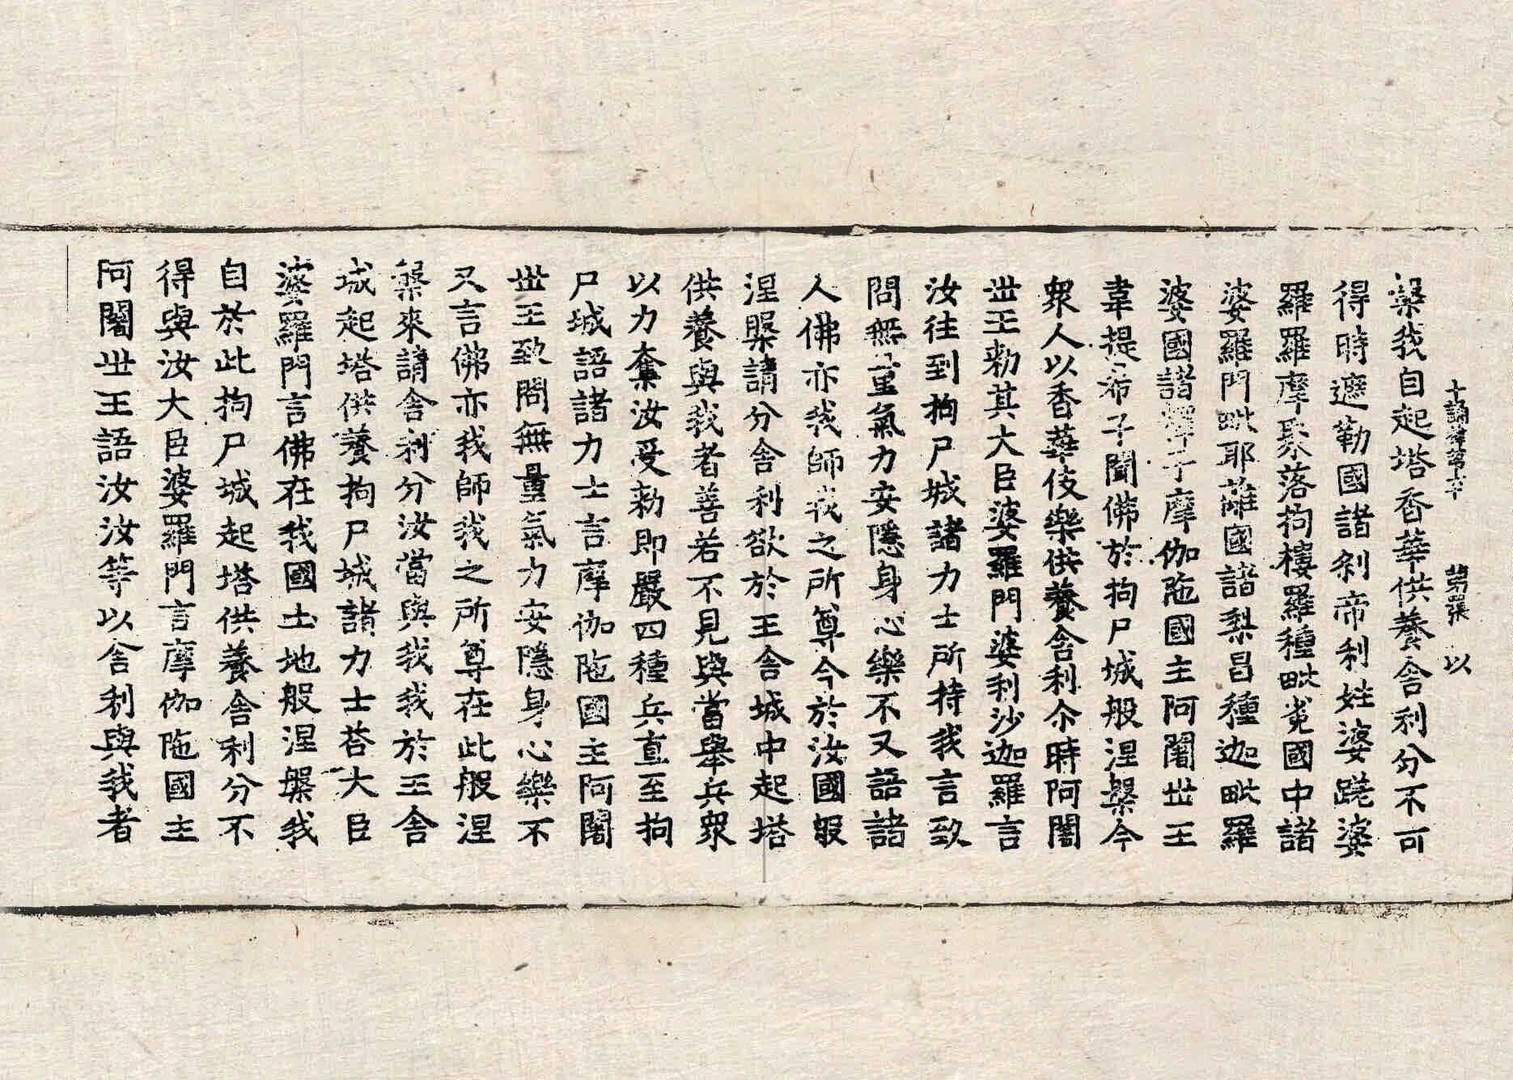 十誦律第六十 第張 以
槃我自起塔香華供養舍利分不可
得時遮勒國諸剎帝利姓婆蹉婆
羅羅摩聚落拘樓羅種毗㝹國中諸
婆羅門毗耶離國諸梨昌種迦毗羅
婆國諸釋子摩伽陁國主阿闍世王
韋提希子聞佛於拘尸城般涅槃今
衆人以香華伎樂供養舍利尒時阿闍
世王勑其大臣婆羅門婆利沙迦羅言
汝往到拘尸城諸力士所持我言致
問無量氣力安隱身心樂不又語諸
人佛亦我師我之所尊今於汝國般
涅槃請分舍利欲於王舍城中起塔
供養與我者善若不見與當舉兵衆
以力奪汝受勑即嚴四種兵直至拘
尸城語諸力士言摩伽陁國主阿闍
世王致問無量氣力安隱身心樂不
又言佛亦我師我之所尊在此般涅
槃來請舍利分汝當與我我於王舍
城起塔供養拘尸城諸力士荅大臣
婆羅門言佛在我國土地般涅槃我
自於此拘尸城起塔供養舍利分不
得與汝大臣婆羅門言摩伽陁國主
阿闍世王語汝汝等以舍利與我者